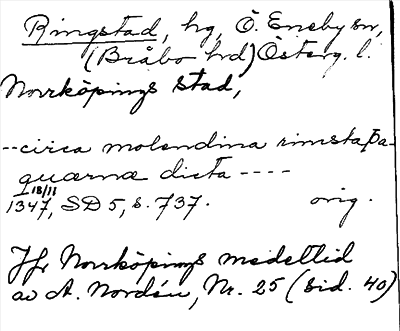 Ringstad, hg, Ö. Eneby sn,
(Bråbo hrd) Österg. l.
Norrköpings stad,
--circa molendina rimstaþa-
quærnæ dicta ----
18/11
1347, SD 5, s. 737. orig.
Jfr Norrköpings medeltid
av A. Nordén, Nr. 25 (sid. 40)